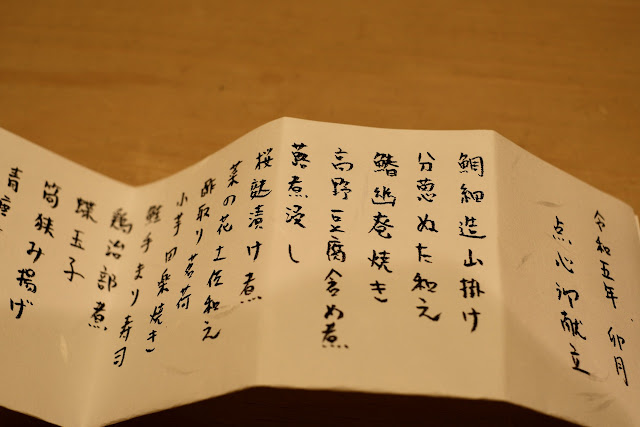 令和五年 卯月
点心御献立
鯛細造山掛け
分葱ぬた和え
鰆幽庵焼き
高野豆腐含め煮
蕗煮浸し
桜麩漬け煮
菜の花土佐和え
酢取り茗荷
小芋田楽焼き
鮭手まり寿司
鶏治部煮
蝶玉子
筍挟み揚げ
青